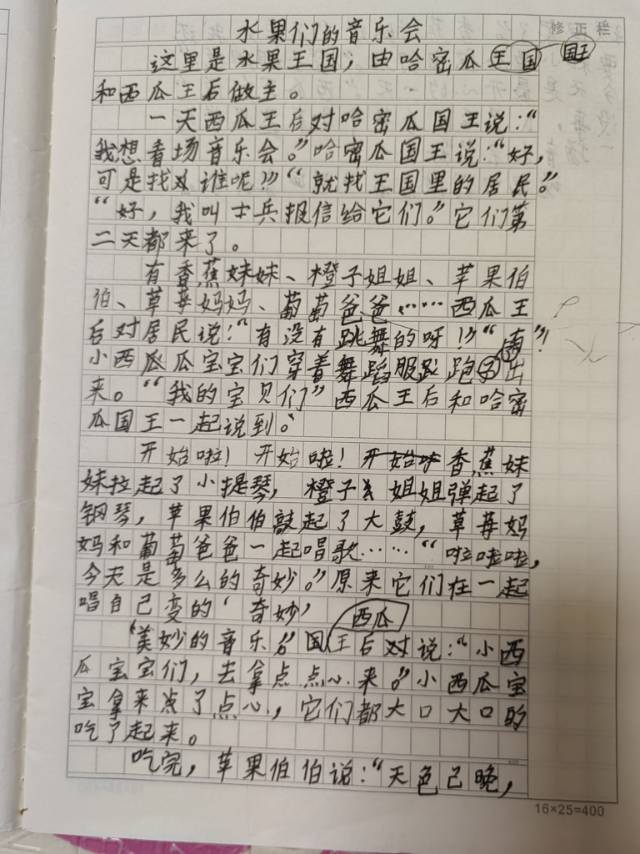 水果们的音乐会
修正栏
这里是水果王国,由哈密瓜国王
和西瓜王后做主。
一天西瓜王后对哈密瓜国王说:“
我想看场音乐会。”哈密瓜国王说:“好,
可是找谁呢?”“就找王国里的居民。”
“好,我叫士兵报信给它们。”它们第
二天都来了。
有香蕉妹妹、橙子姐姐、苹果伯
伯、草莓妈妈、葡萄爸爸……西瓜王
后对居民说:“有没有跳舞的呀!”“有”!
小西瓜宝宝们穿着舞蹈服跑出
来。“我的宝贝们”西瓜王后和哈密
瓜国王一起说到。
开始啦!开始啦!香蕉妹
妹拉起了小提琴,橙子姐姐弹起了
钢琴,苹果伯伯敲起了大鼓,草莓妈
妈和葡萄爸爸一起唱歌……“啦啦啦,
今天是多么的奇妙。”原来它们在一起
唱自己变的‘奇妙’
“美妙的音乐。”西瓜王后对说:“小西
瓜宝宝们,去拿点点心来。”小西瓜宝
宝拿来了点心,它们都大口大口的
吃了起来。
吃完,苹果伯伯说:“天色已晚,
16×25=400